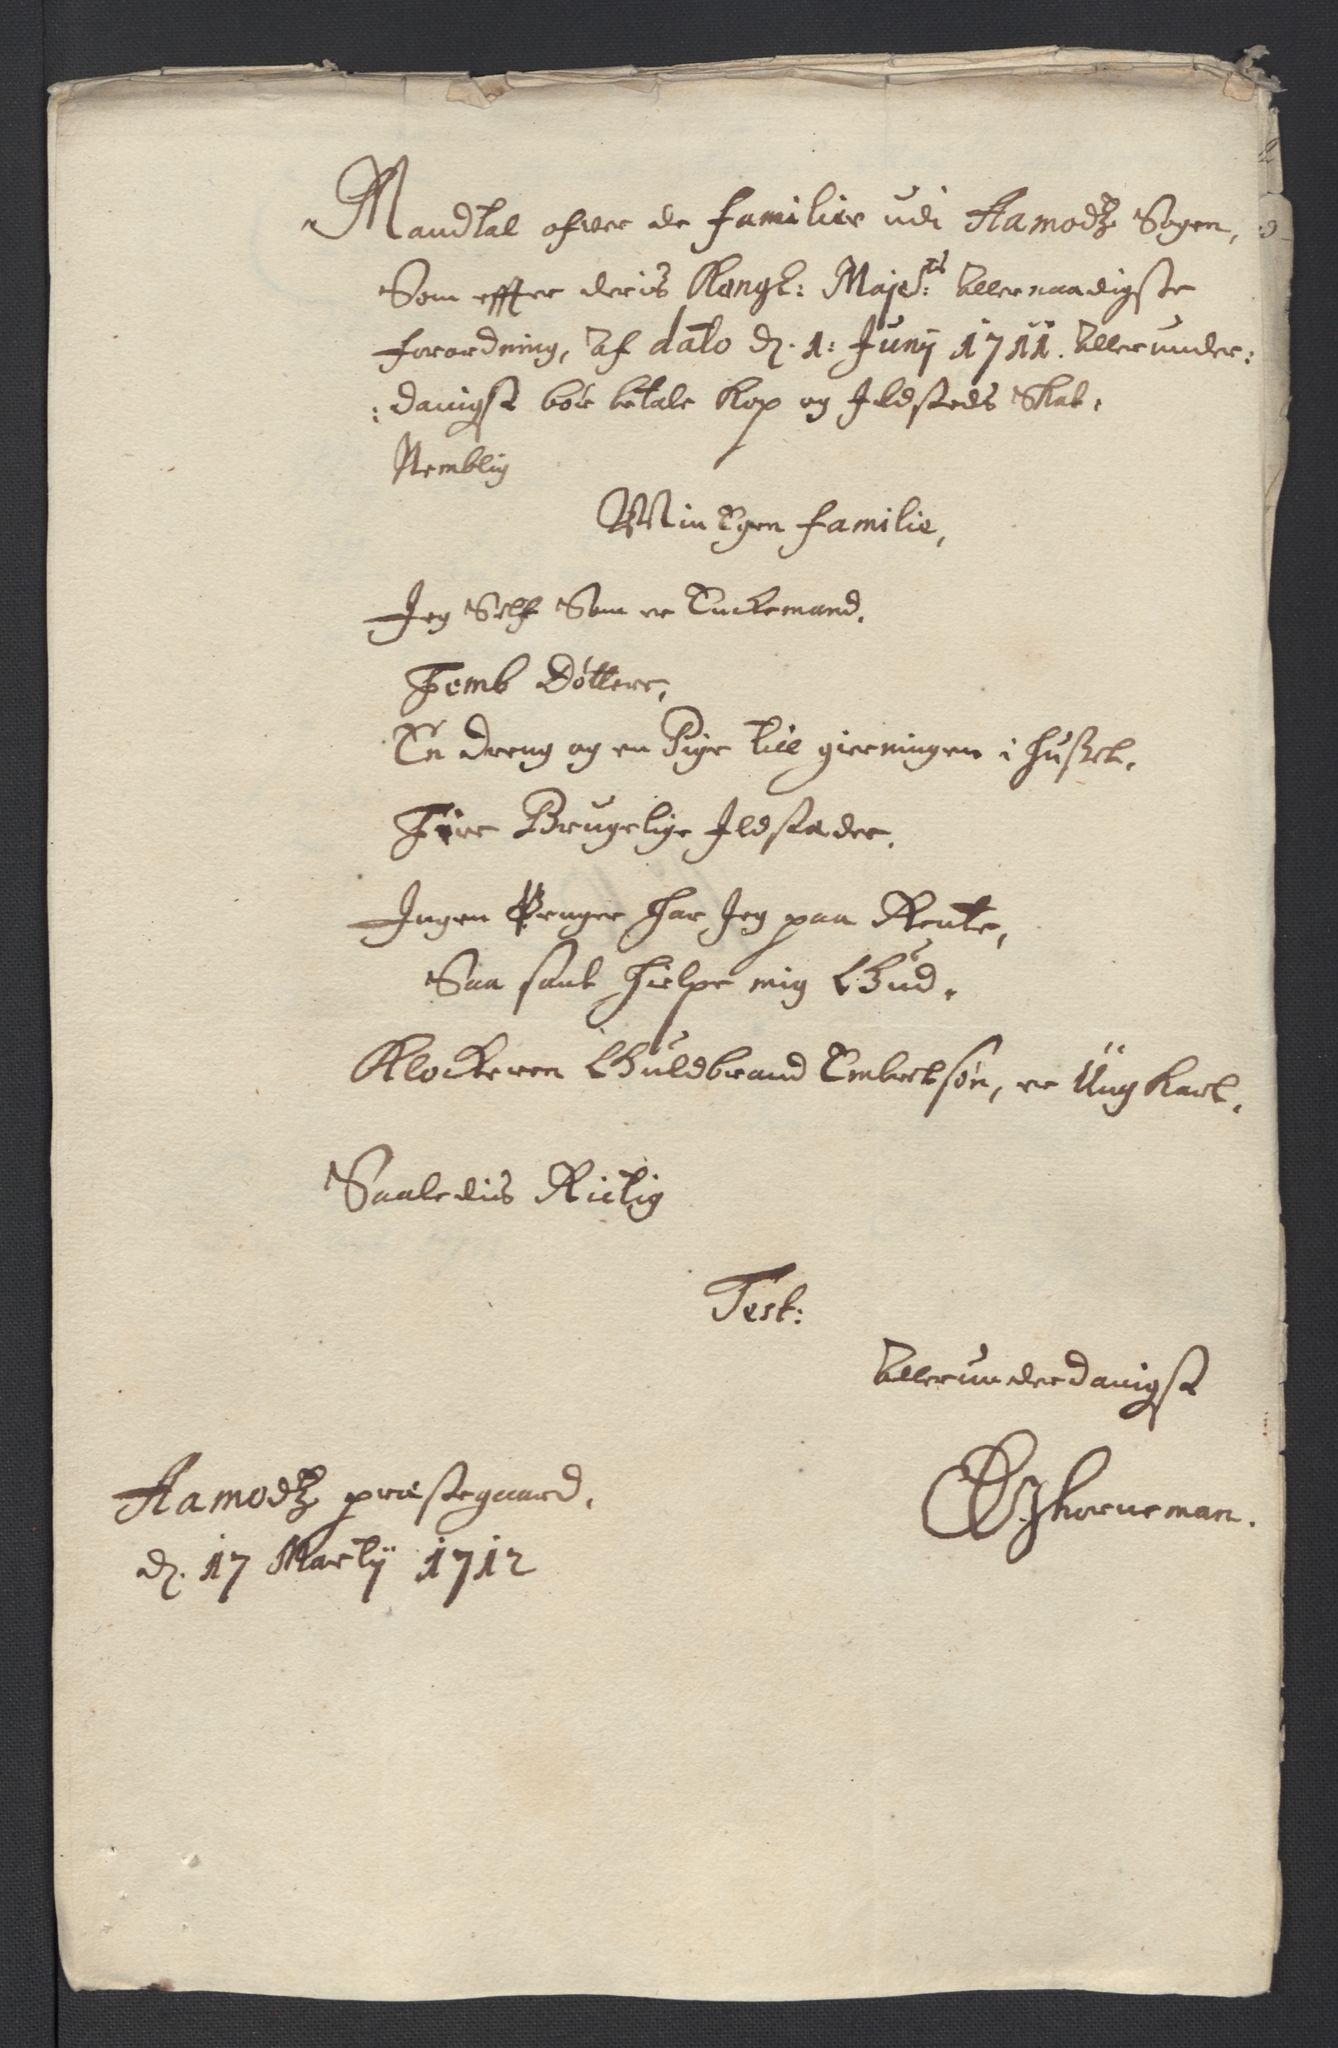 Mandtal ofver de familier udi Aamodtz Sogen,
Som effter deris Kongl: Majestts: Allernaadigste
forordning, Af dato d. 1: Junij 1711. Allerunder:
:danigst bör betale Kop og Ildsteds Skat,
Nemblig
Min Egen familie,
Jeg Self Som er Enckemand.
Femb Döttere,
En dreng og en Pige till gierningen i huset,
Fire Brugelige Ildstæder.
Ingen Penger har Jeg paa Rente,
Saa sant hielpe mig Gud.
Klockeren Guldbrand Embretsön, er Ung karl.
Saaledis Rictig
Test:
Allerunderdanigst
Horneman.
Aamodtz præstegaard.
d. 17 Martij 1712